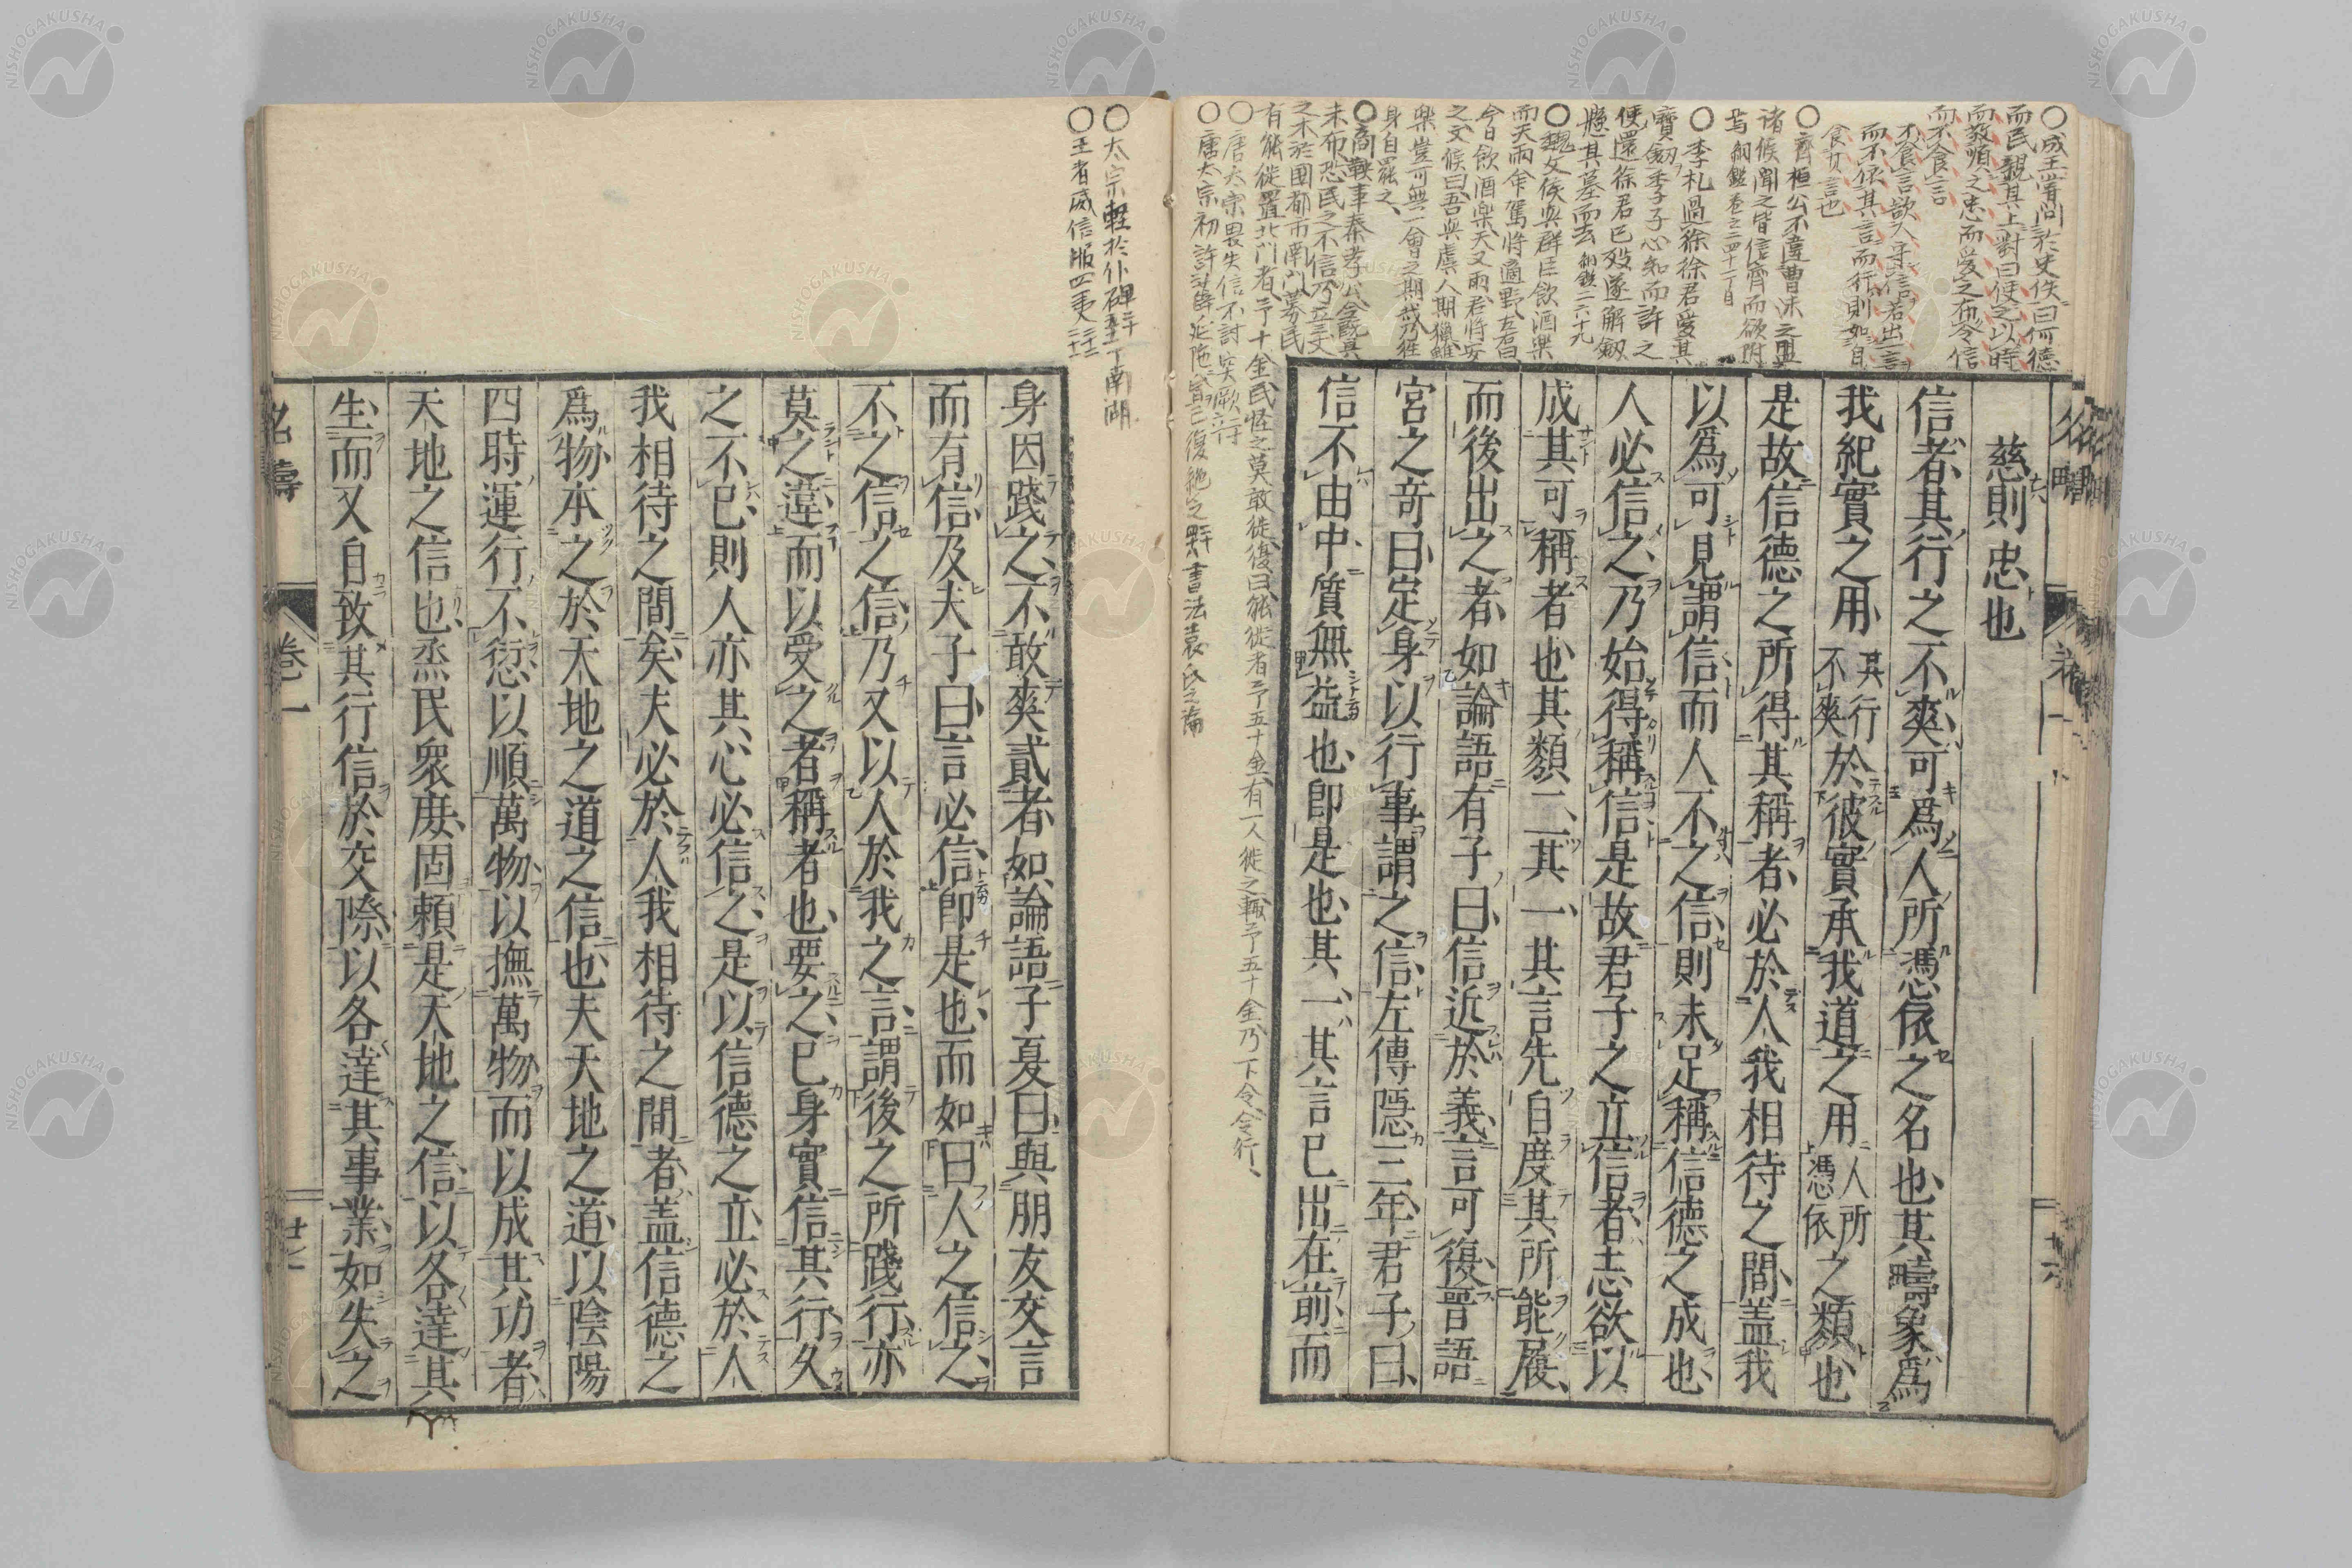 慈則忠也
信者其行之不爽可爲人所憑依之名也其疇象爲
我紀實之用其行不爽於彼實承我道之用人所憑依之類也
是故信德之所得其稱者必於人我相待之間蓋我
以爲可見謂信而人不之信則未足稱信德之成也
人必信之乃始得稱信是故君子之立信者志欲以
成其可稱者也其類二其一其言先自度其所能履
而後出之者如論語有子曰信近於義言可復晉語
宮之奇曰定身以行事謂之信左傳隱三年君子曰
信不由中質無益也卽是也其一其言已出在前而
身因踐之不敢爽貳者如論語子夏曰與朋友交言
而有信及夫子曰言必信卽是也而如曰人之信之
不之信之信乃又以人於我之言謂後之所踐行亦
莫之違而以受之者稱者也要之已身實信其行久
之不已則人亦其心必信之是以信德之立必於人
我相待之間矣夫必於人我相待之間者蓋信德之
爲物本之於天地之道之信也夫天地之道以陰陽
四時運行不愆以順萬物以撫萬物而以成其功者
天地之信也烝民衆庶固賴是天地之信以各達其
生而又自致其行信於交際以各達其事業如失之
名疇
卷一
廿一
○成王嘗問於史佚曰何德
而民親其上對曰使之以時
而敬順之忠而愛之布令信
而不食言
不食言欲人守信若出言
而不依其言而行則如自
食其言也
○齊桓公不違曹沫之盟
諸侯聞之皆信齊而欲附
焉 綱鑑卷之二四十一丁目
○季札過徐徐君愛其
寶劔季子心知而許之
使還徐君已歿遂解劔
懸其墓而去 綱鑑二六十九
○魏文侯與群臣飲酒樂
而天雨命駕將適野左右曰
今日飲酒樂天又雨君將安
之文侯曰吾與虞人期獵雖
樂豈可無一會之期哉乃往
身自罷之
○商鞅事秦孝公令既具
未布恐民之不信乃立三丈
之木於國都市南門募民
有能徙置北門者予十金民怪之莫敢徙復曰能徙者予五十金有一人徙之輙予五十金乃下令令行
○唐太宗畏失信不討突厥
○唐太宗初許薛延陀
○太宗輕於仆碑
○王者威信服四夷